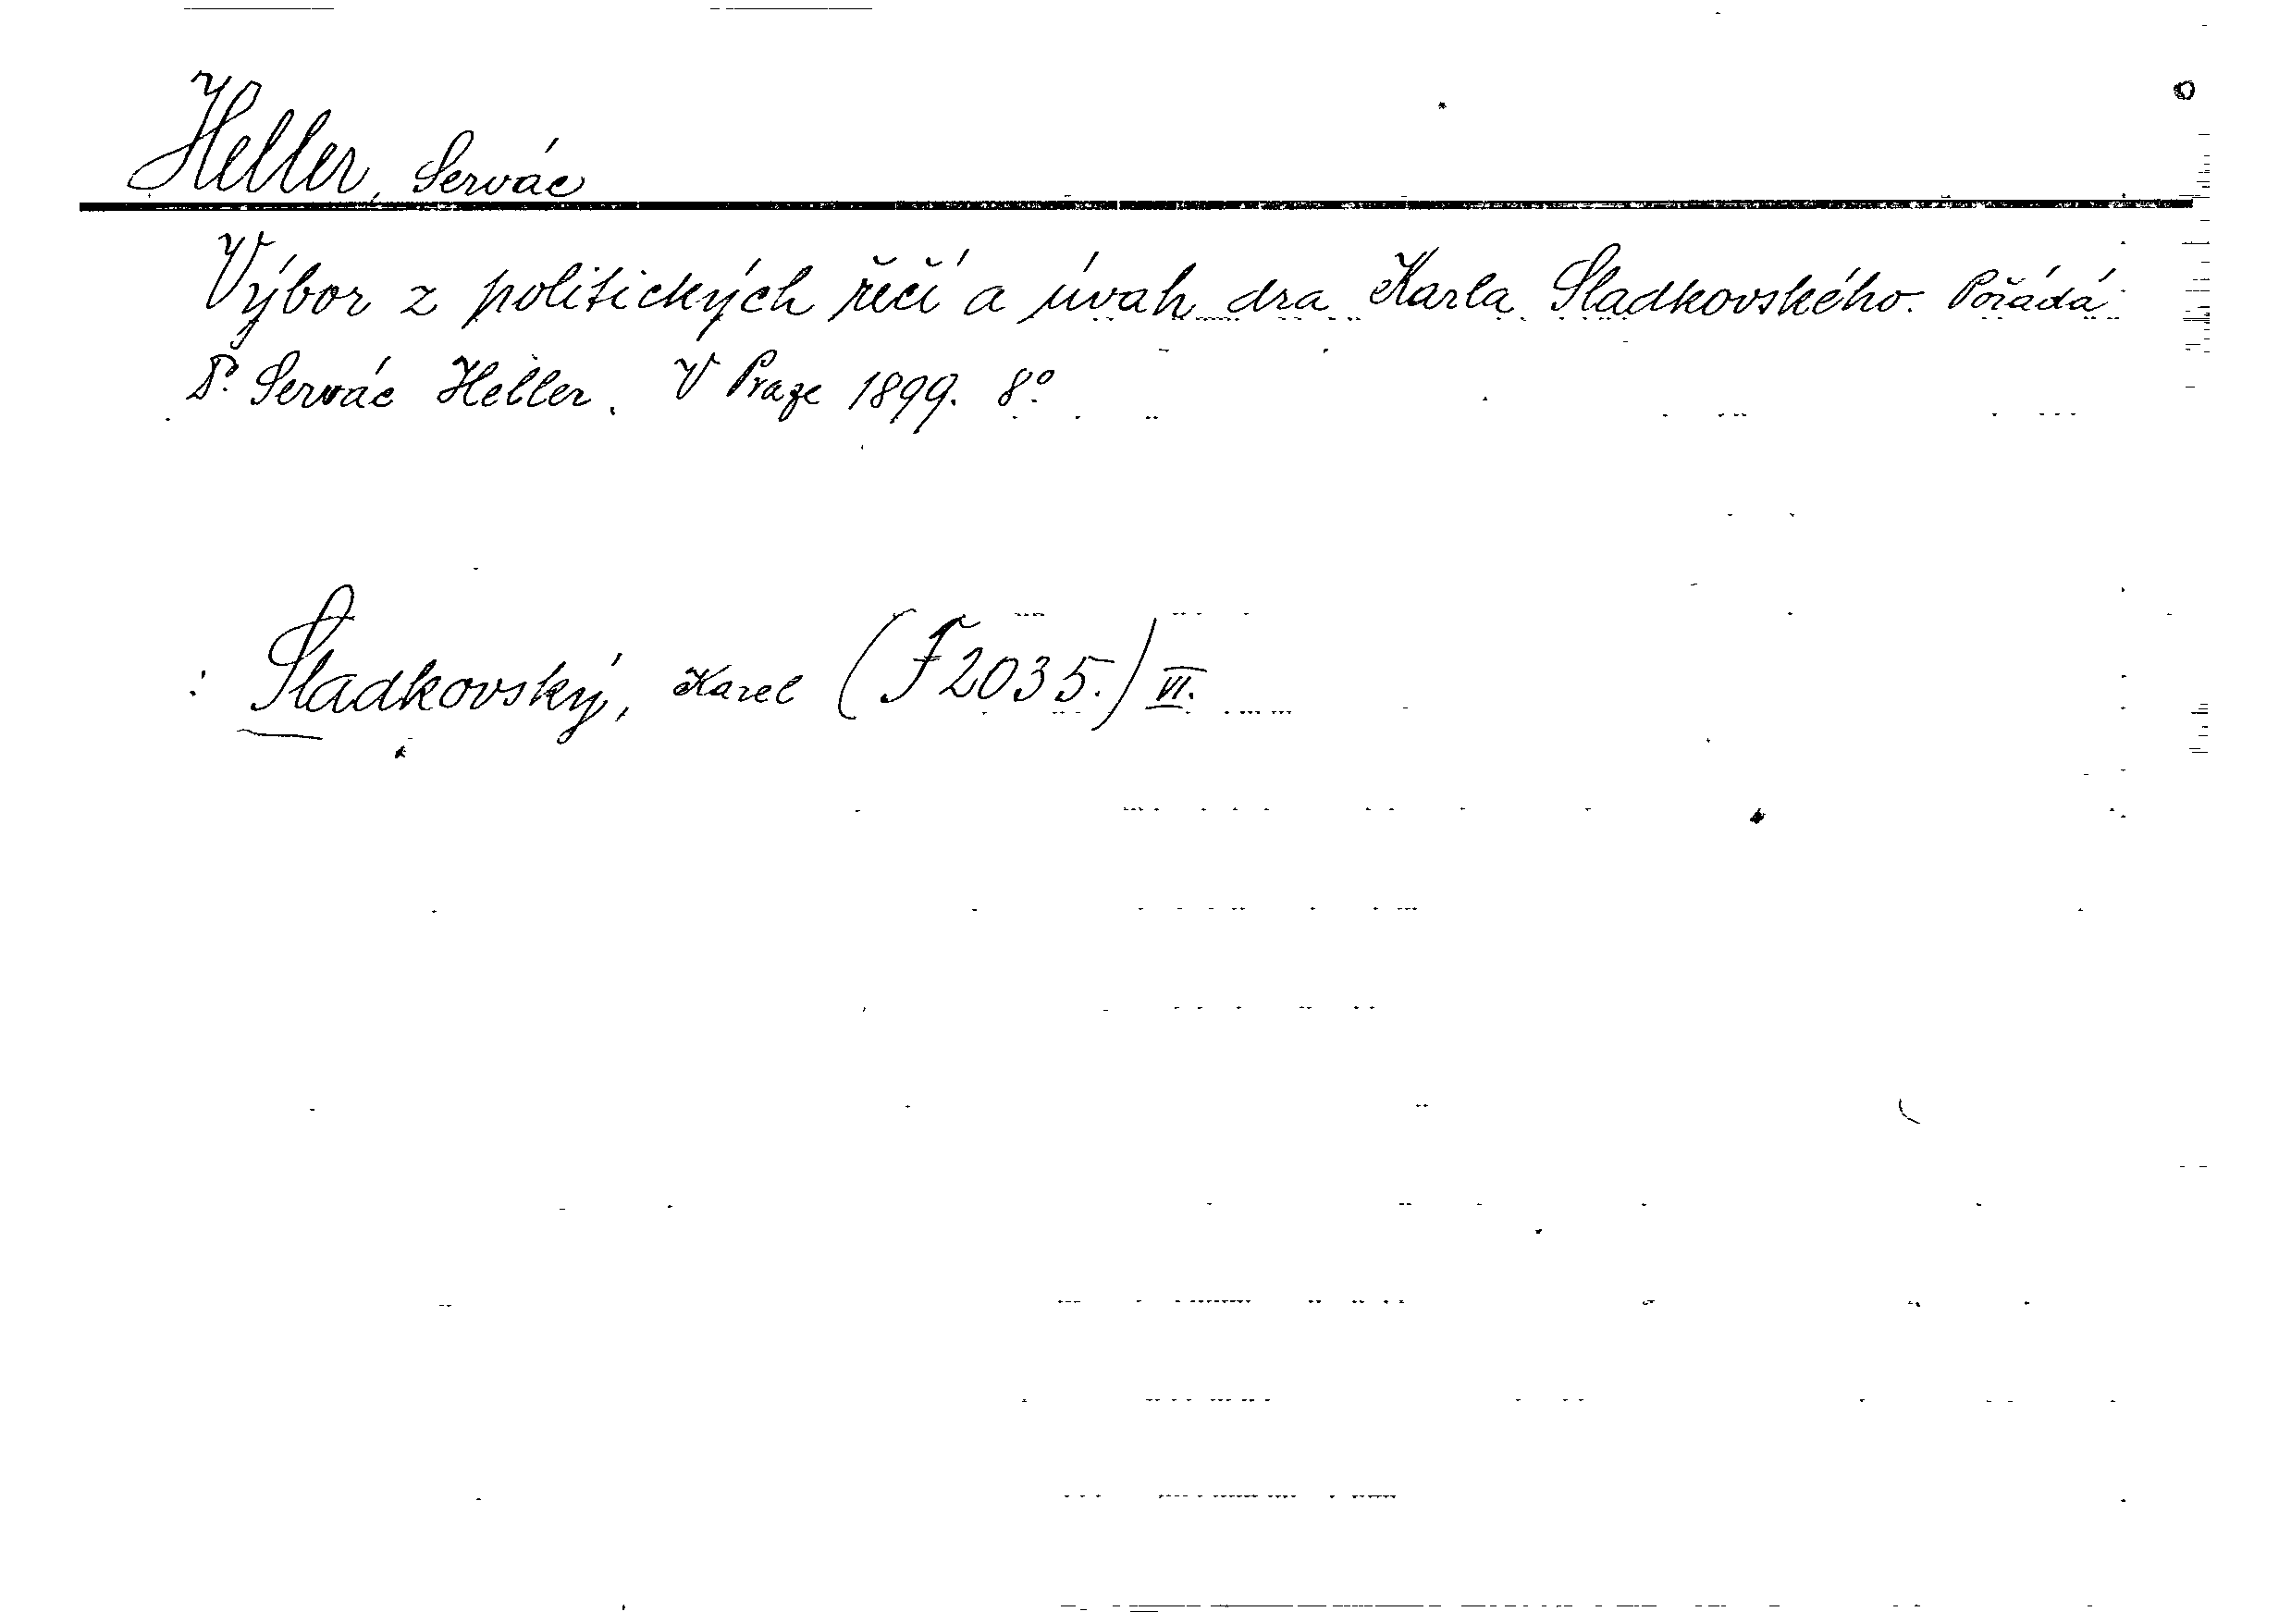 Heller, Servác
Výbor z politických řečí a úvah dra Karla Sladkovského. Pořádá
Dr. Servác Heller. V Praze 1899. 8°
: Sladkovský, Karel (F 2035.) VI.